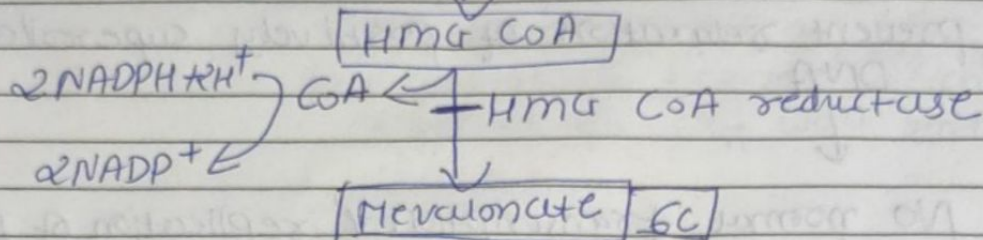 HMG CoA
2NADPH+2H⁺ CoA HMG CoA reductase
2NADP⁺
Mevalonate 6C